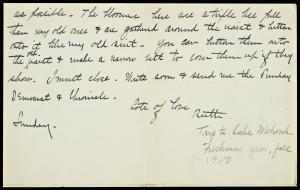 as possible. The bloomers here are a trifle less full
than my old ones & are gathered around the waist & button
onto it like my old skirt. You can button them onto
the waist & make a narrow belt to cover them up if they
show. I must close. Write soon & send me the Sunday
Democrat & Chronicle.
Lots of Love
Ruth.
Sunday.
Trip to Lake Mohonk
Freshman year, fall
1900